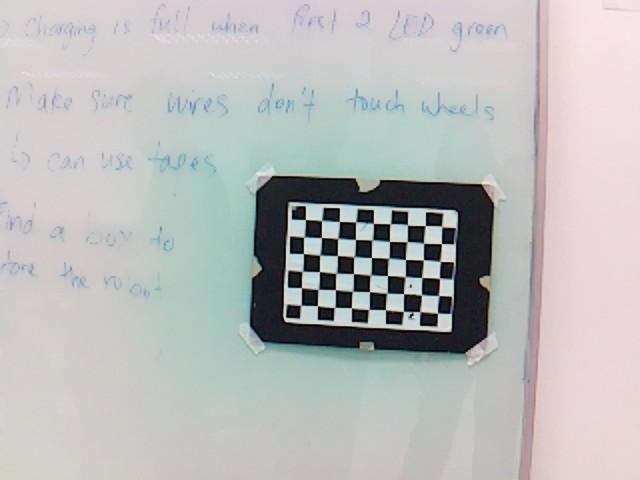 Charging is full when first 2 LED green
Make sure wires don't touch wheels
↳ can use tapes
Find a box to
store the robot